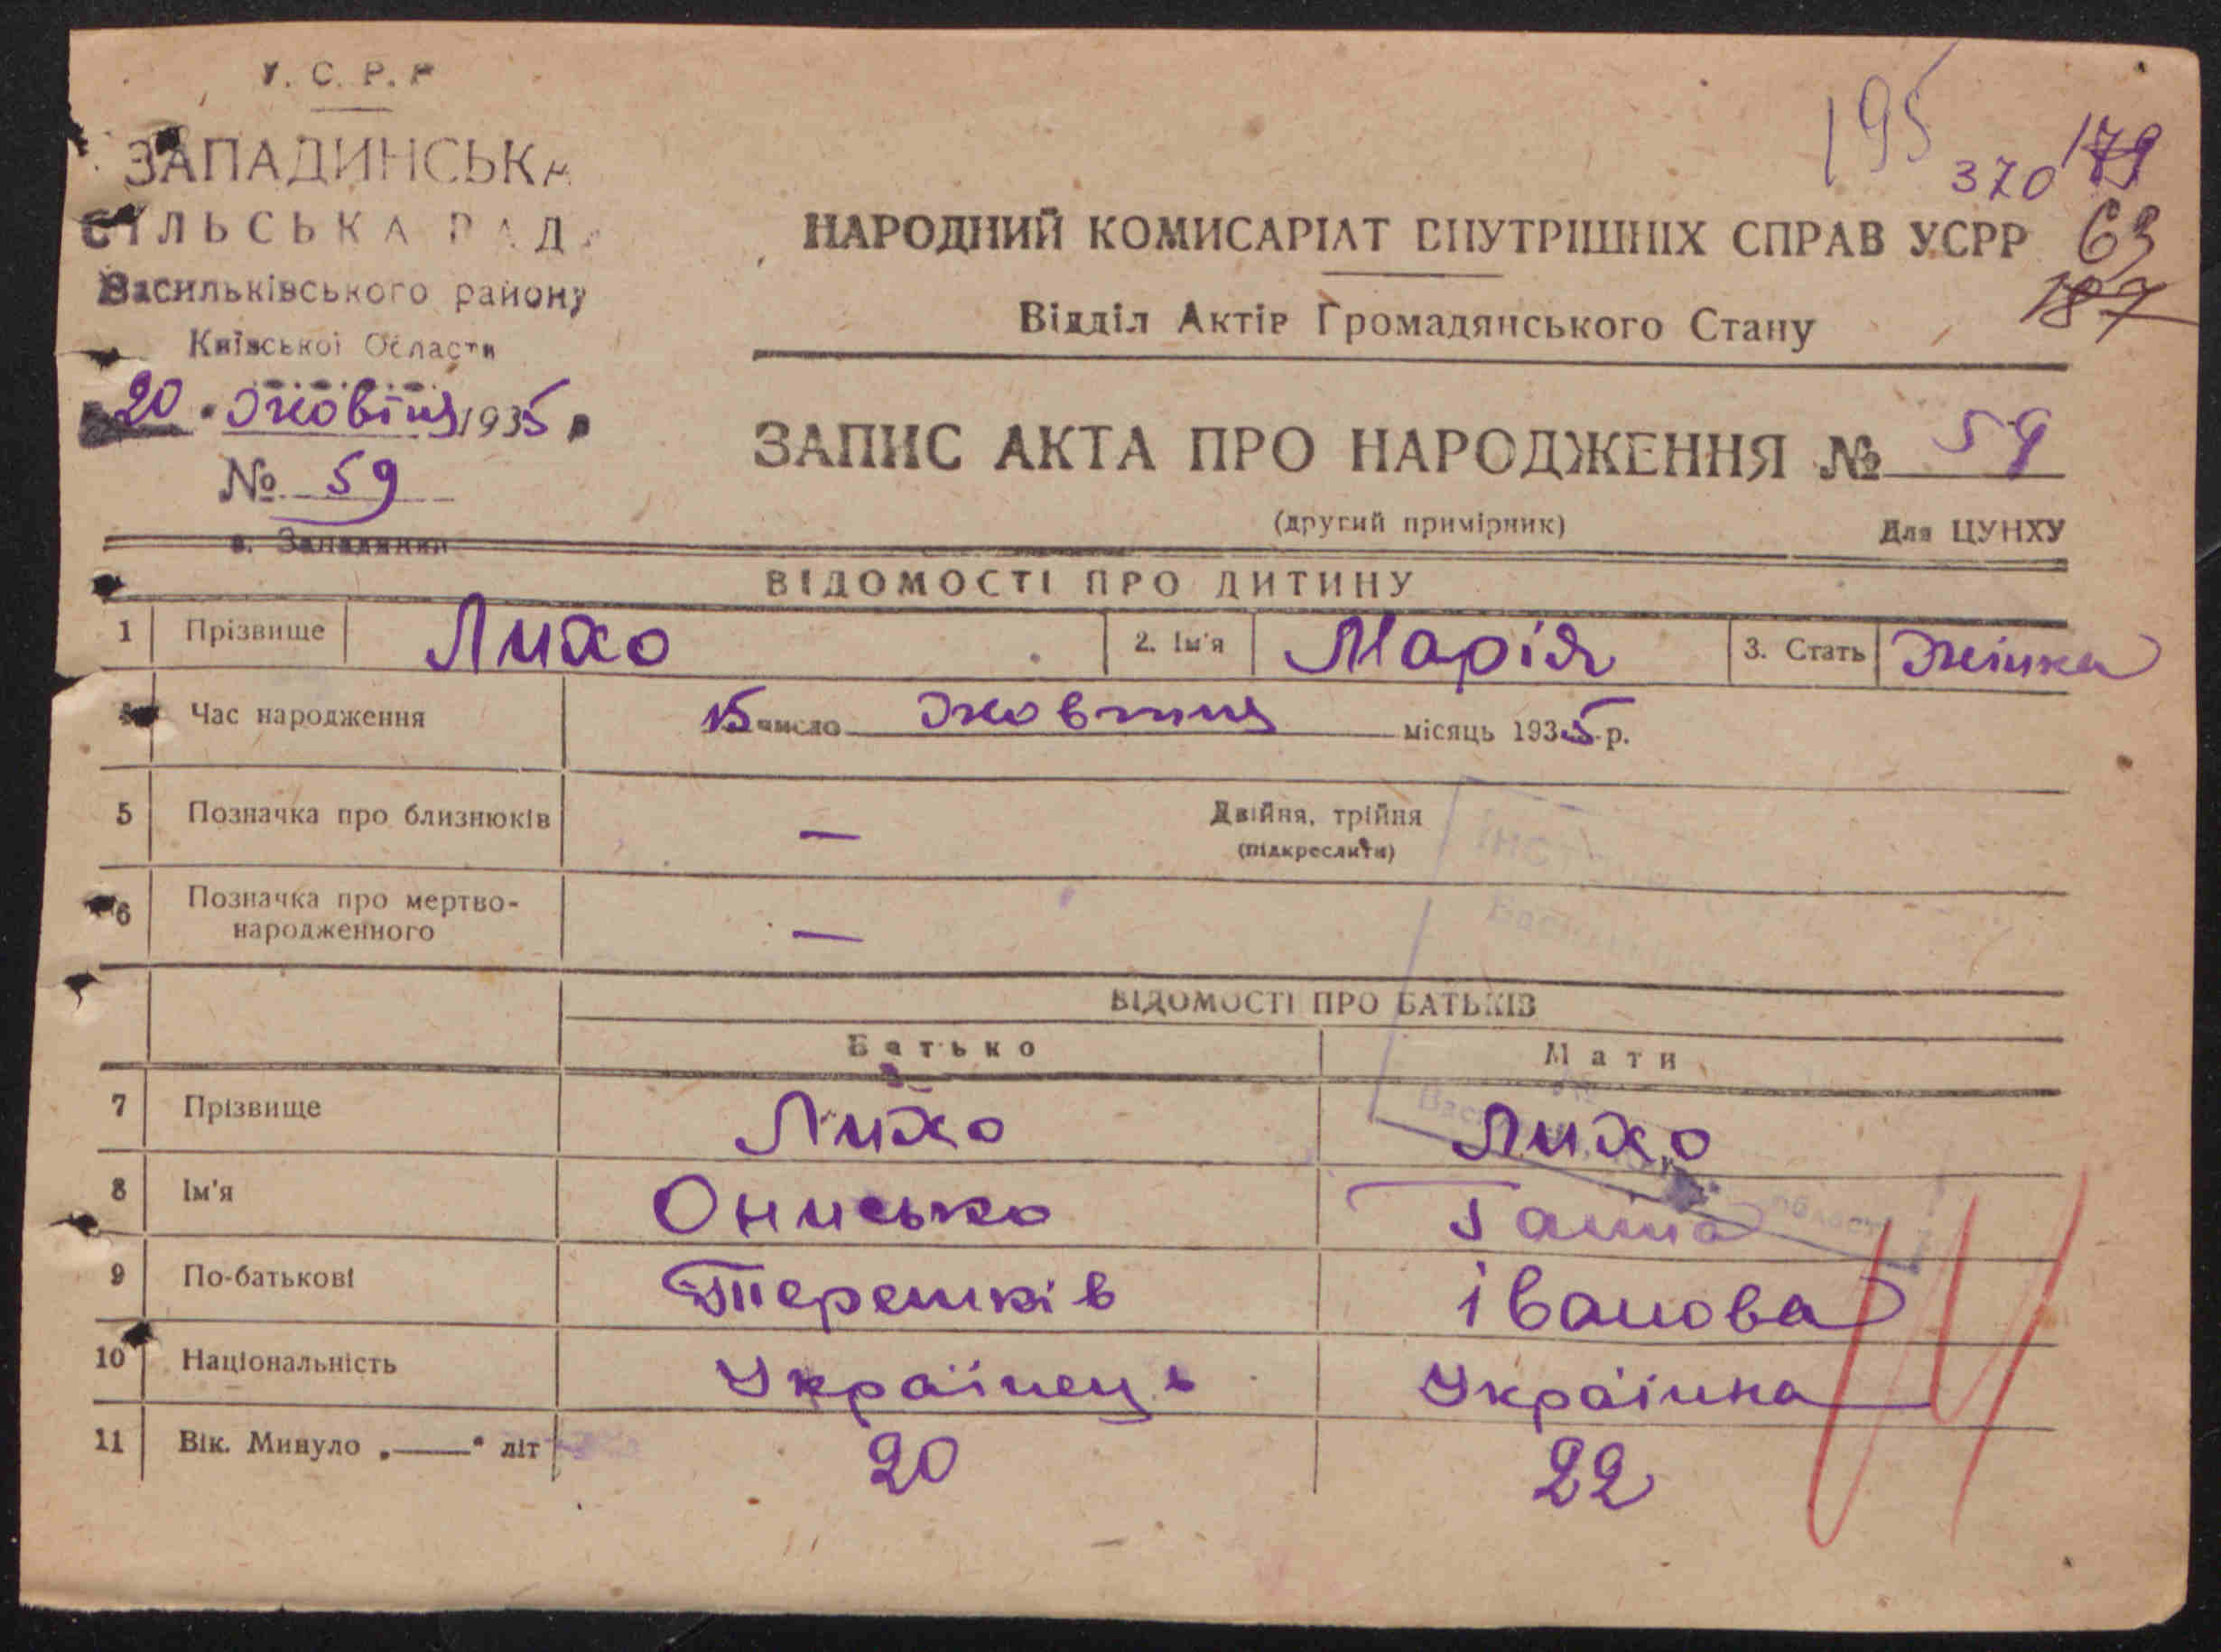 У. С. Р. Р
ЗАПАДИНСЬКА
СІЛЬСЬКА РАДА
Васильківського району
Київської Области
20 жовтня 1935 р
№ 59
с. Западинка
195
370
179
63
187
НАРОДНИЙ КОМИСАРІАТ ВНУТРІШНІХ СПРАВ УСРР
Відділ Актів Громадянського Стану
ЗАПИС АКТА ПРО НАРОДЖЕННЯ № 59
(другий примірник) Для ЦУНХУ
ВІДОМОСТІ ПРО ДИТИНУ
1 Прізвище Лихо 2. Ім'я Марія 3. Стать Жінка
Час народження 15 число жовтня місяць 1935 р.
5 Позначка про близнюків — Двійня, трійня
(підкреслити)
6 Позначка про мертво-
народженного —
ВІДОМОСТІ ПРО БАТЬКІВ
Батько Мати
7 Прізвище Лихо Лихо
8 Ім'я Онисько Ганна
9 По-батькові Терешків іванова
10 Національність Українець Українка
11 Вік. Минуло „——“ літ 20 22